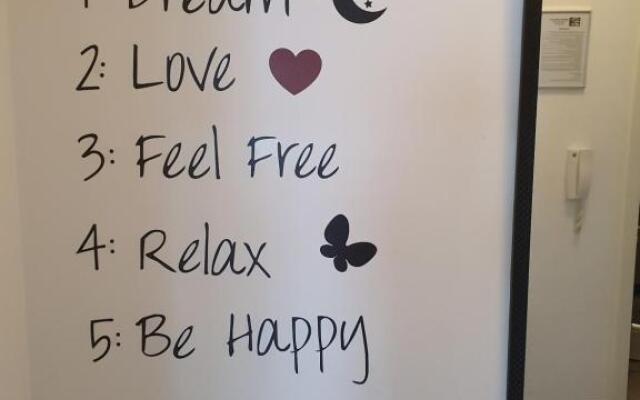 1: Dream
2: Love
3: Feel Free
4: Relax
5: Be Happy